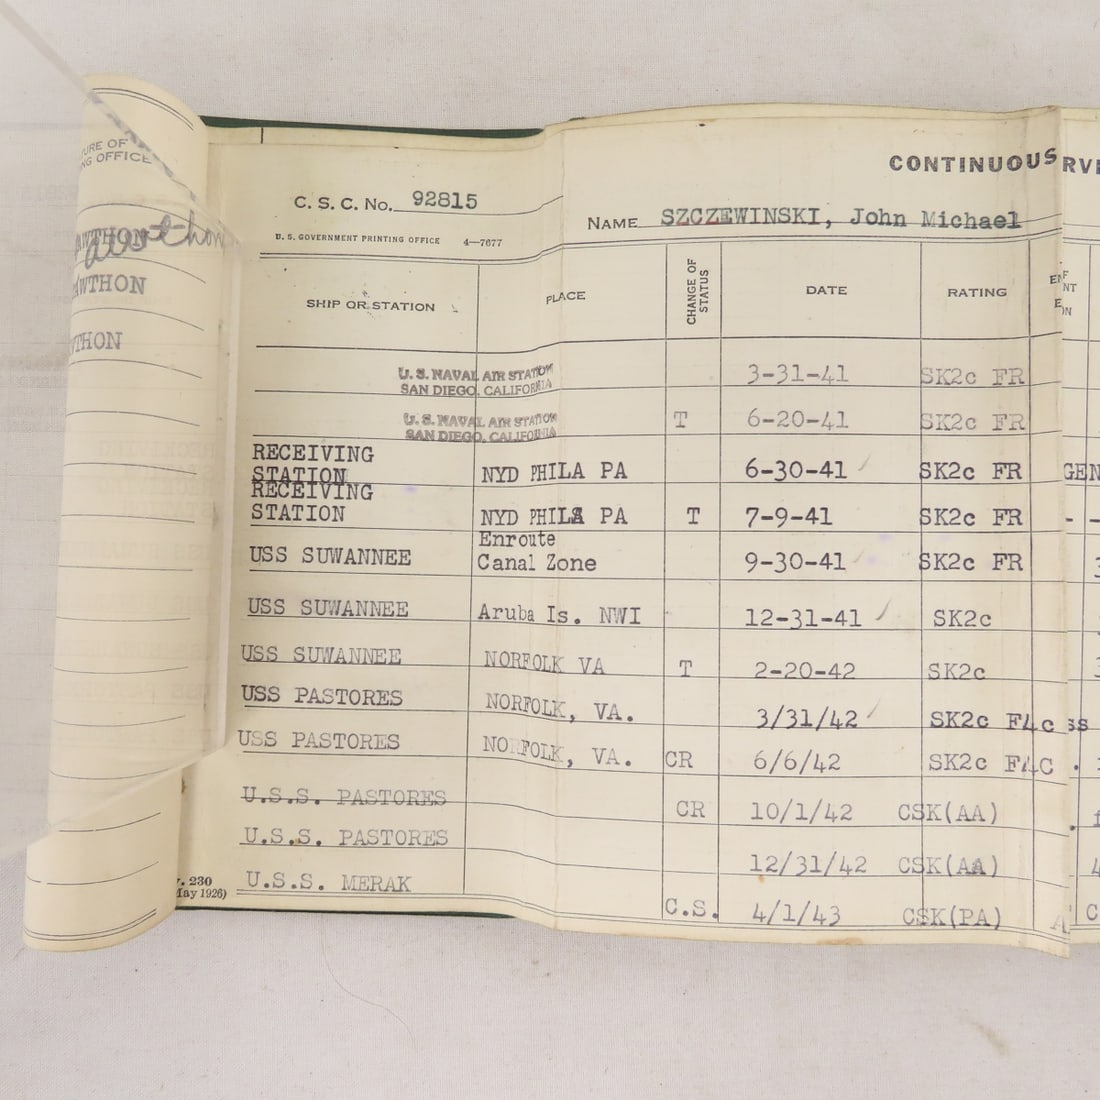 CONTINUOUS
C. S. C. No. 92815
NAME SZCZEWINSKI, John Michael
U. S. GOVERNMENT PRINTING OFFICE 4—7677
SHIP OR STATION PLACE CHANGE OF STATUS DATE RATING
U. S. NAVAL AIR STATION
SAN DIEGO, CALIFORNIA 3-31-41 SK2c FR
U. S. NAVAL AIR STATION
SAN DIEGO, CALIFORNIA T 6-20-41 SK2c FR
RECEIVING
STATION NYD PHILA PA 6-30-41 SK2c FR
RECEIVING
STATION NYD PHILA PA T 7-9-41 SK2c FR
Enroute
USS SUWANNEE Canal Zone 9-30-41 SK2c FR
USS SUWANNEE Aruba Is. NWI 12-31-41 SK2c
USS SUWANNEE NORFOLK VA T 2-20-42 SK2c
USS PASTORES NORFOLK, VA. 3/31/42 SK2c F4c
USS PASTORES NORFOLK, VA. CR 6/6/42 SK2c F4C
U.S.S. PASTORES CR 10/1/42 CSK(AA)
U.S.S. PASTORES 12/31/42 CSK(AA)
U.S.S. MERAK C.S. 4/1/43 CSK(PA)
230
May 1926)
OF
OFFICE